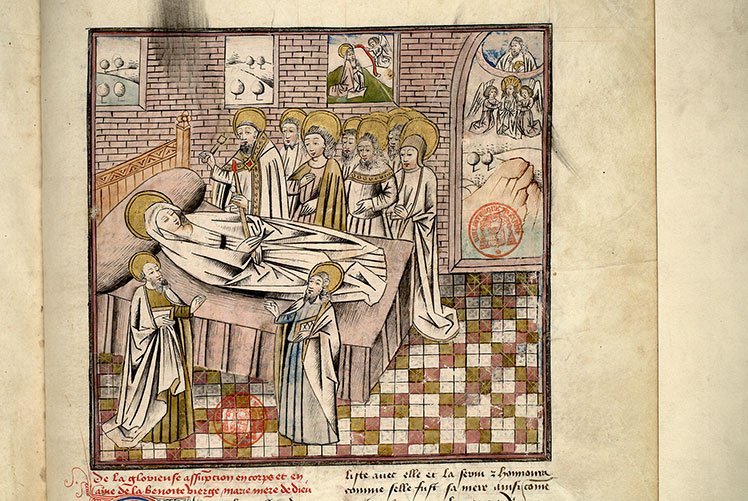 De la glorieuse assumption en corps et en
ame de la benoite vierge marie mere de dieu
liste avec elle et la servi z honnoura
comme selle fust sa mere ainsi come